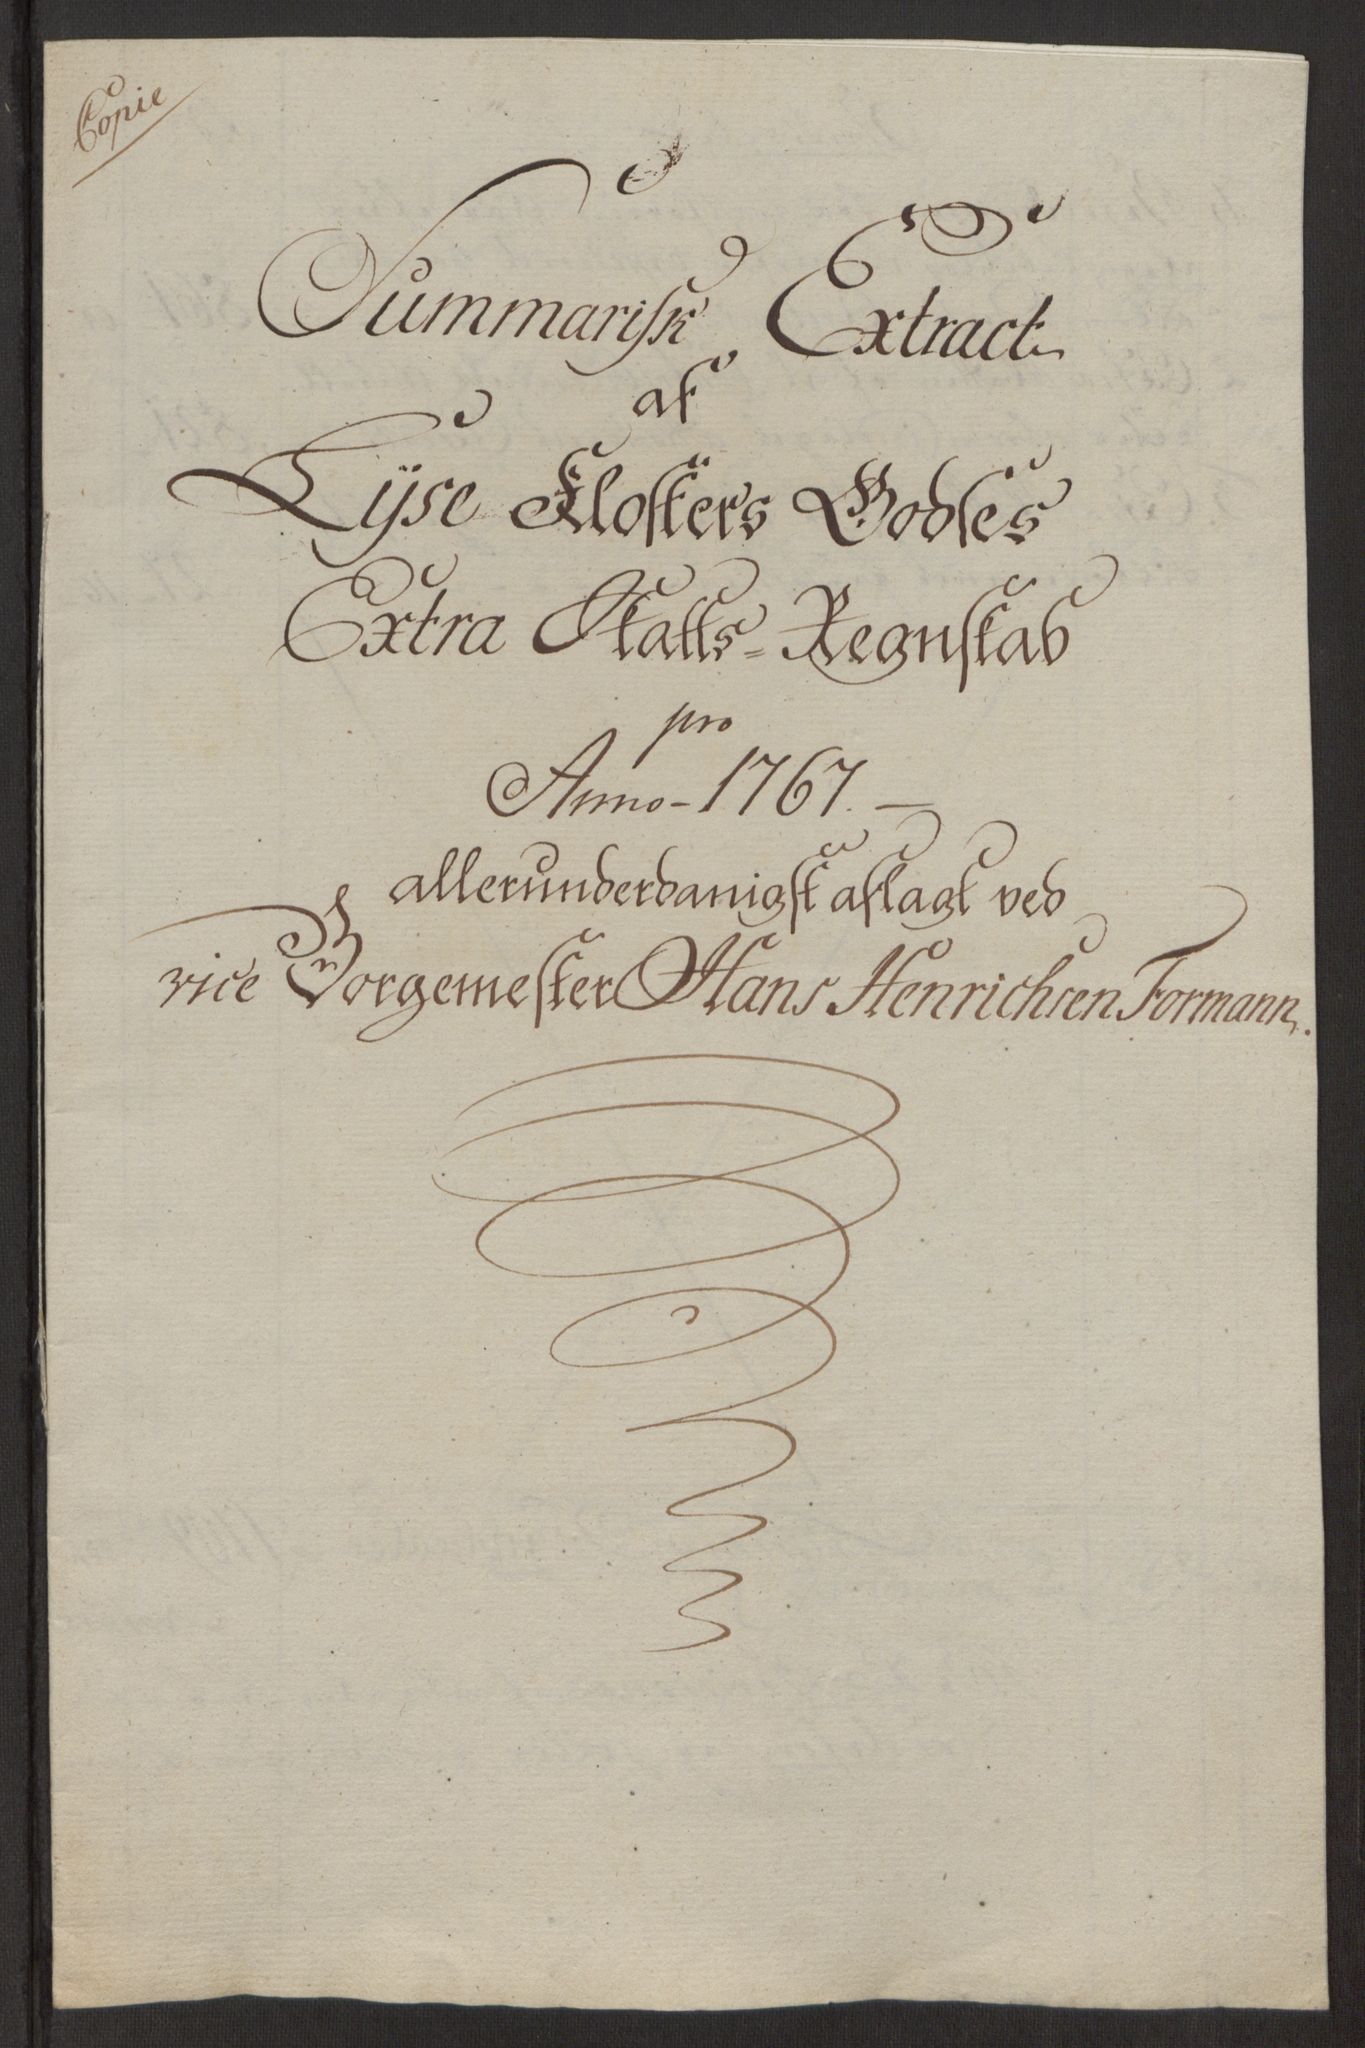 Copie
Summarisk Extract
af
Lyse Klosters Godses
Extra Skatts-Regnskab
pro
Anno-1767.
allerunderdanigst aflagt ved
vice Borgemester Hans Henrichsen Formann.